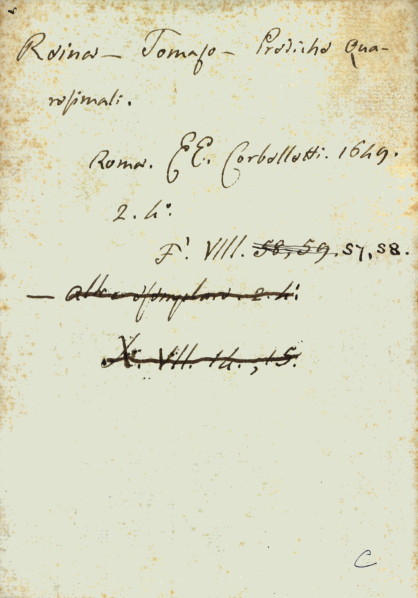 Reina - Tomaso - Prediche Qua-
resimali.
Roma. EE. Corbelletti. 1649.
2. 4°.
F'. VIII. 58, 59. 57, 58.
- altro esemplare. 2. 4°.
X. VII. 14., 15.
C